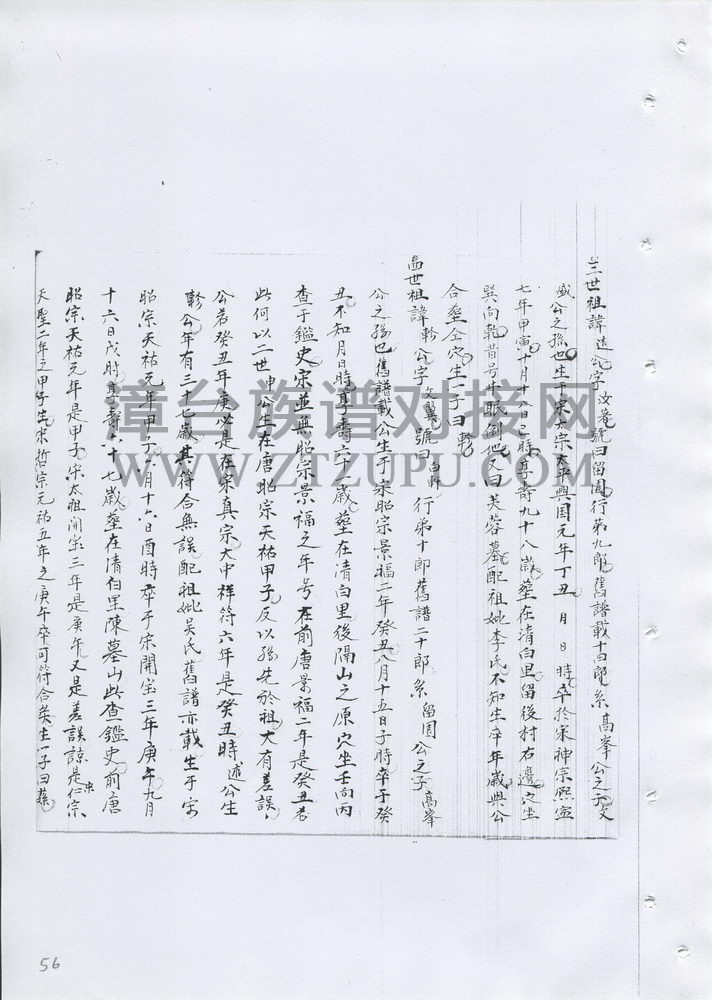 三世祖諱達公字汝菴號曰留園行第九郎舊譜載十四郎系高峯公之子文
盛公之孫也生于宋太宗太平興国元年丁丑 月 日 時卒於宋神宗熙寧
七年甲寅十月十八日巳時享壽九十八歲塟在清白里留後村右邊穴坐
巽向乾昔号甘眠倒地又曰芙蓉墓配祖妣李氏不知生卒年歲與公
合塟仝穴生一子曰軫
四世祖諱軫公字汝翼號曰白軒 行第十郎舊譜二十郎系留園公之子高峯
公之孫也舊譜載公生于宋昭宗景福二年癸丑八月十五日子時卒于癸
丑不知月日時享壽六十一歲塟在清白里後隔山之原穴坐壬向丙
查于鑑史宋並無昭宗景福之年号在前唐景福二年是癸丑若
此何以二世申公生在唐昭宗天祐甲子反以孫先於祖大有差誤
公若癸丑年庚必是在宋真宗大中祥符六年是癸丑時述公生
軫公年有三十七歲其符合無誤配祖妣吳氏舊譜亦載生于宋
昭宗天祐元年甲子八月十六日酉時卒于宋開宝三年庚午九月
十六日戊時享壽六十七歲塟在清白里陳墓山此查鑑史前唐
昭宗天祐元年是甲子宋太祖開宝三年是庚午又是差誤諒是宋仁宗
天聖二年之甲子生宋哲宗元祐五年之庚午卒可符合矣生一子曰
章台族谱对接网
WWW.ZTZUPU.COM
56